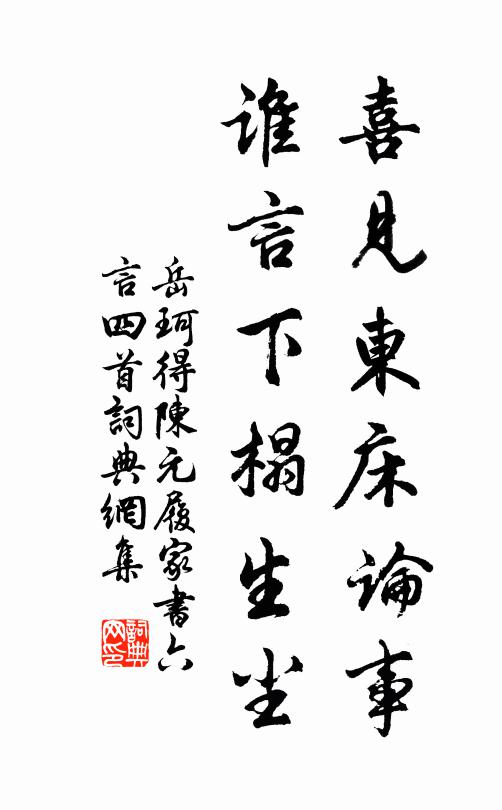 喜見東床論事
誰言下榻生尘
岳珂得陳元履家書六
言四首詞典網集
詞典网印